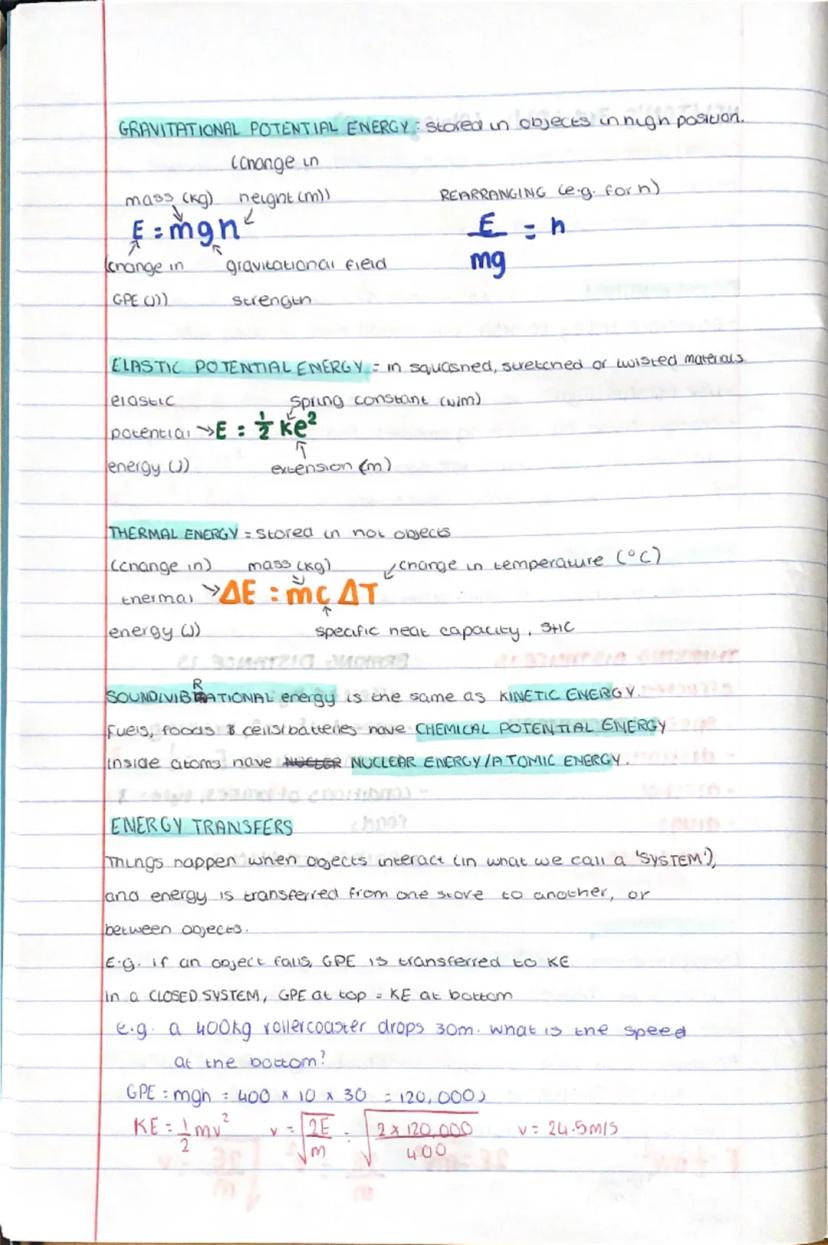 GRAVITATIONAL POTENTIAL ENERGY: stored in objects in high position.
(change in
mass (kg) height (m)) REARRANGING (e.g. for h)
E = mgh E/mg = h
(change in gravitational field
GPE (J)) strength
ELASTIC POTENTIAL ENERGY = in squashed, stretched or twisted materials
elastic spring constant (N/m)
potential → E = ½ ke²
energy (J) extension (m)
THERMAL ENERGY = stored in hot objects
(change in) mass (kg) change in temperature (°C)
thermal → ΔE = mc ΔT
energy (J) specific heat capacity, SHC
SOUND/VIBRATIONAL energy is the same as KINETIC ENERGY.
Fuels, foods & cells/batteries have CHEMICAL POTENTIAL ENERGY
Inside atoms have NUCLEAR ENERGY/ATOMIC ENERGY.
ENERGY TRANSFERS
Things happen when objects interact (in what we call a 'SYSTEM'),
and energy is transferred from one store to another, or
between objects.
E.g. if an object falls, GPE is transferred to KE
In a CLOSED SYSTEM, GPE at top = KE at bottom
e.g. a 400kg rollercoaster drops 30m. What is the speed
at the bottom?
GPE = mgh = 400 × 10 × 30 = 120,000J
KE = ½mv² v = √(2E/m) = √(2 × 120,000/400) v = 24.5m/s